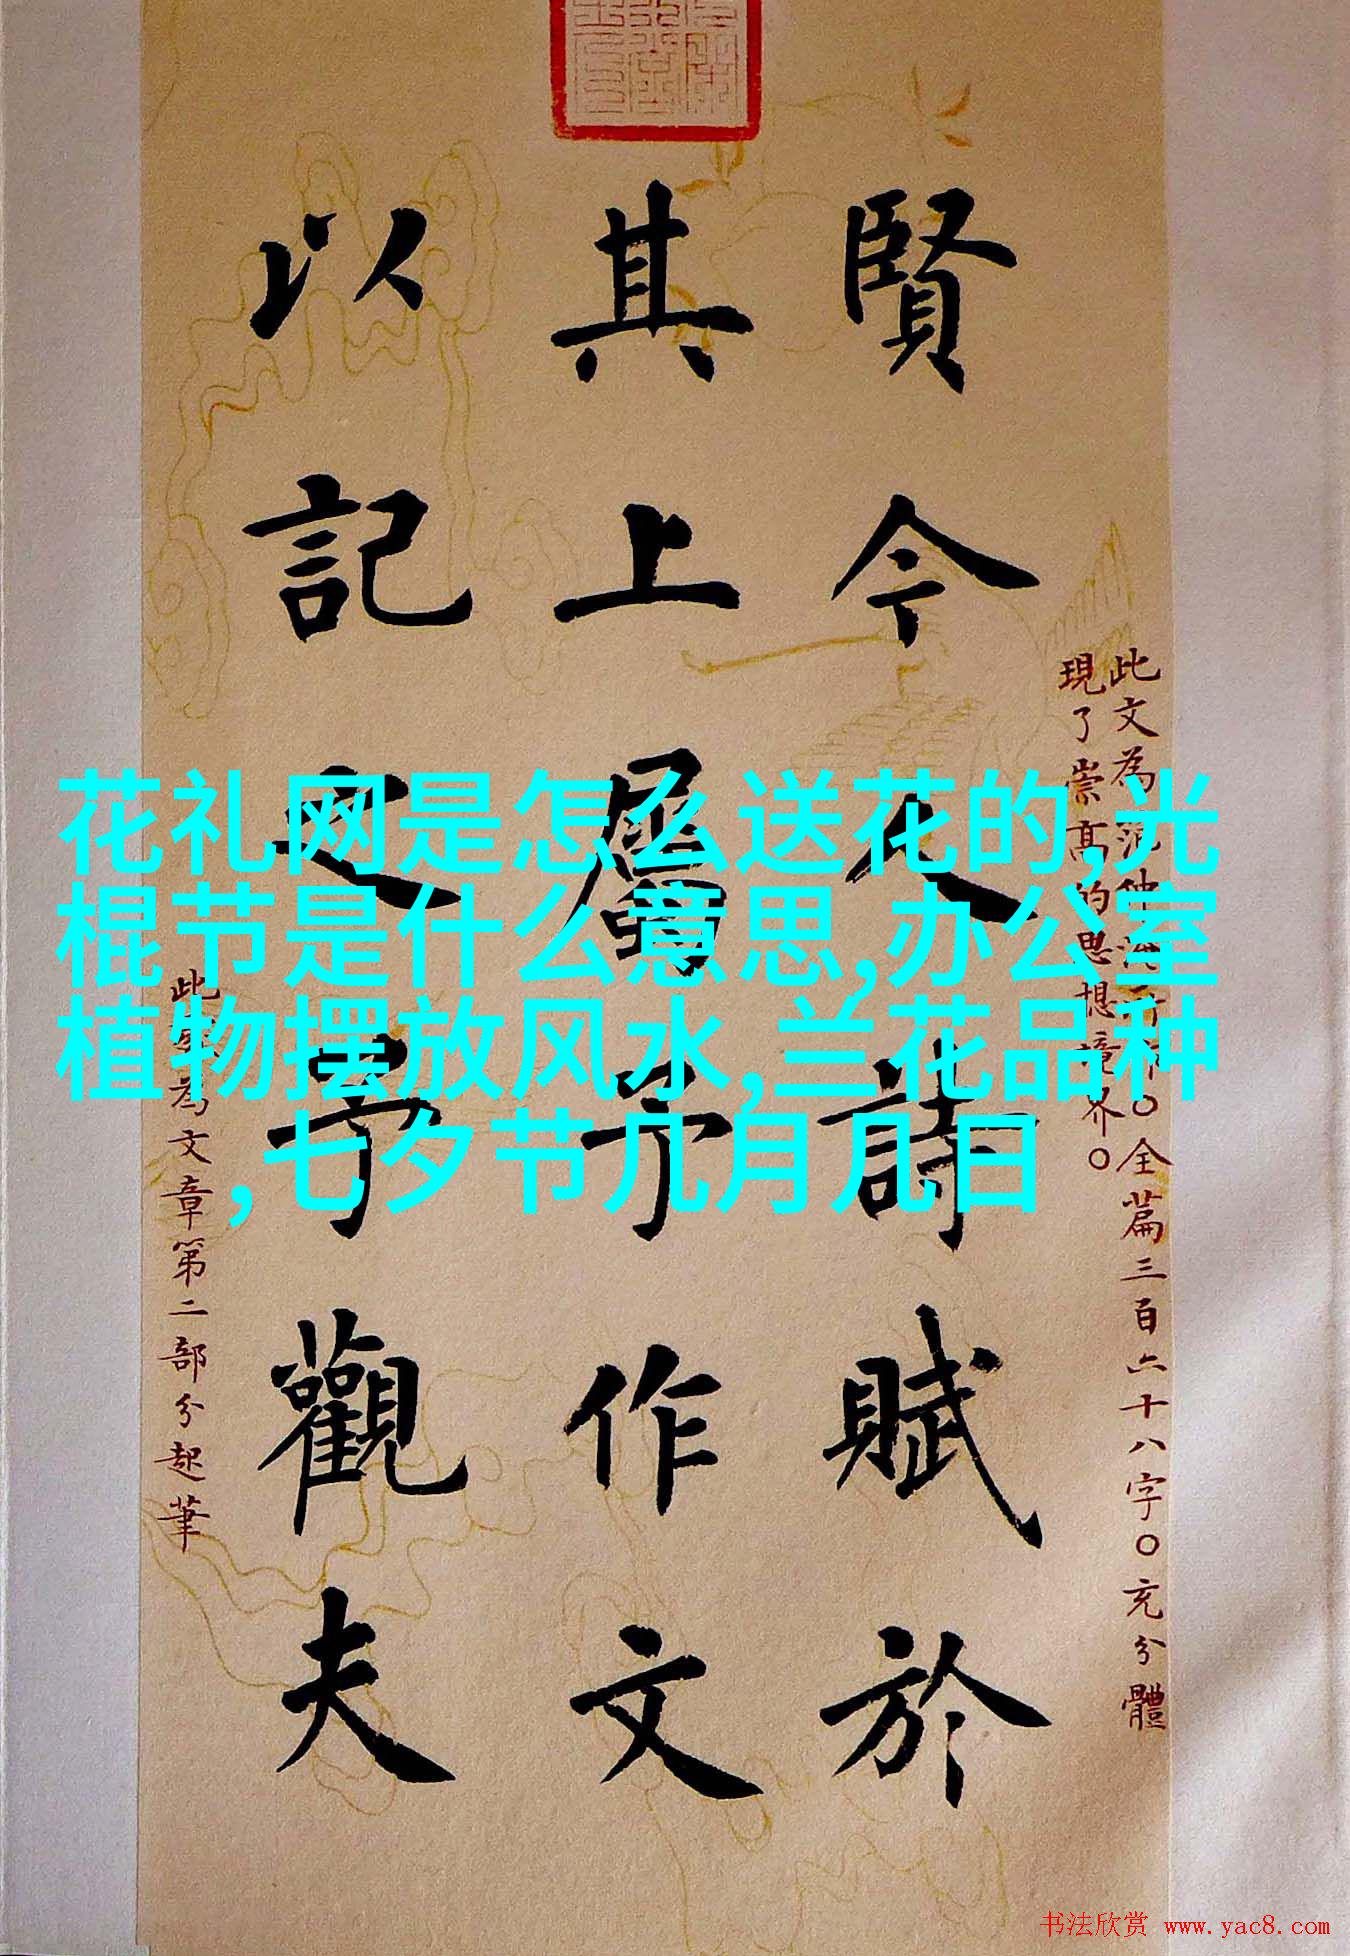 賢今人詩賦於
其上屬予作文
以記之予觀夫
此文為范仲淹所作○全篇三百六十八字○充分體
現了崇高的思想境界○
此處為文章第二部分起筆
花礼网是怎么送花的,光
棍节是什么意思,办公室
植物摆放风水,兰花品种
,七夕节几月几日
书法欣赏 www.yac8.com